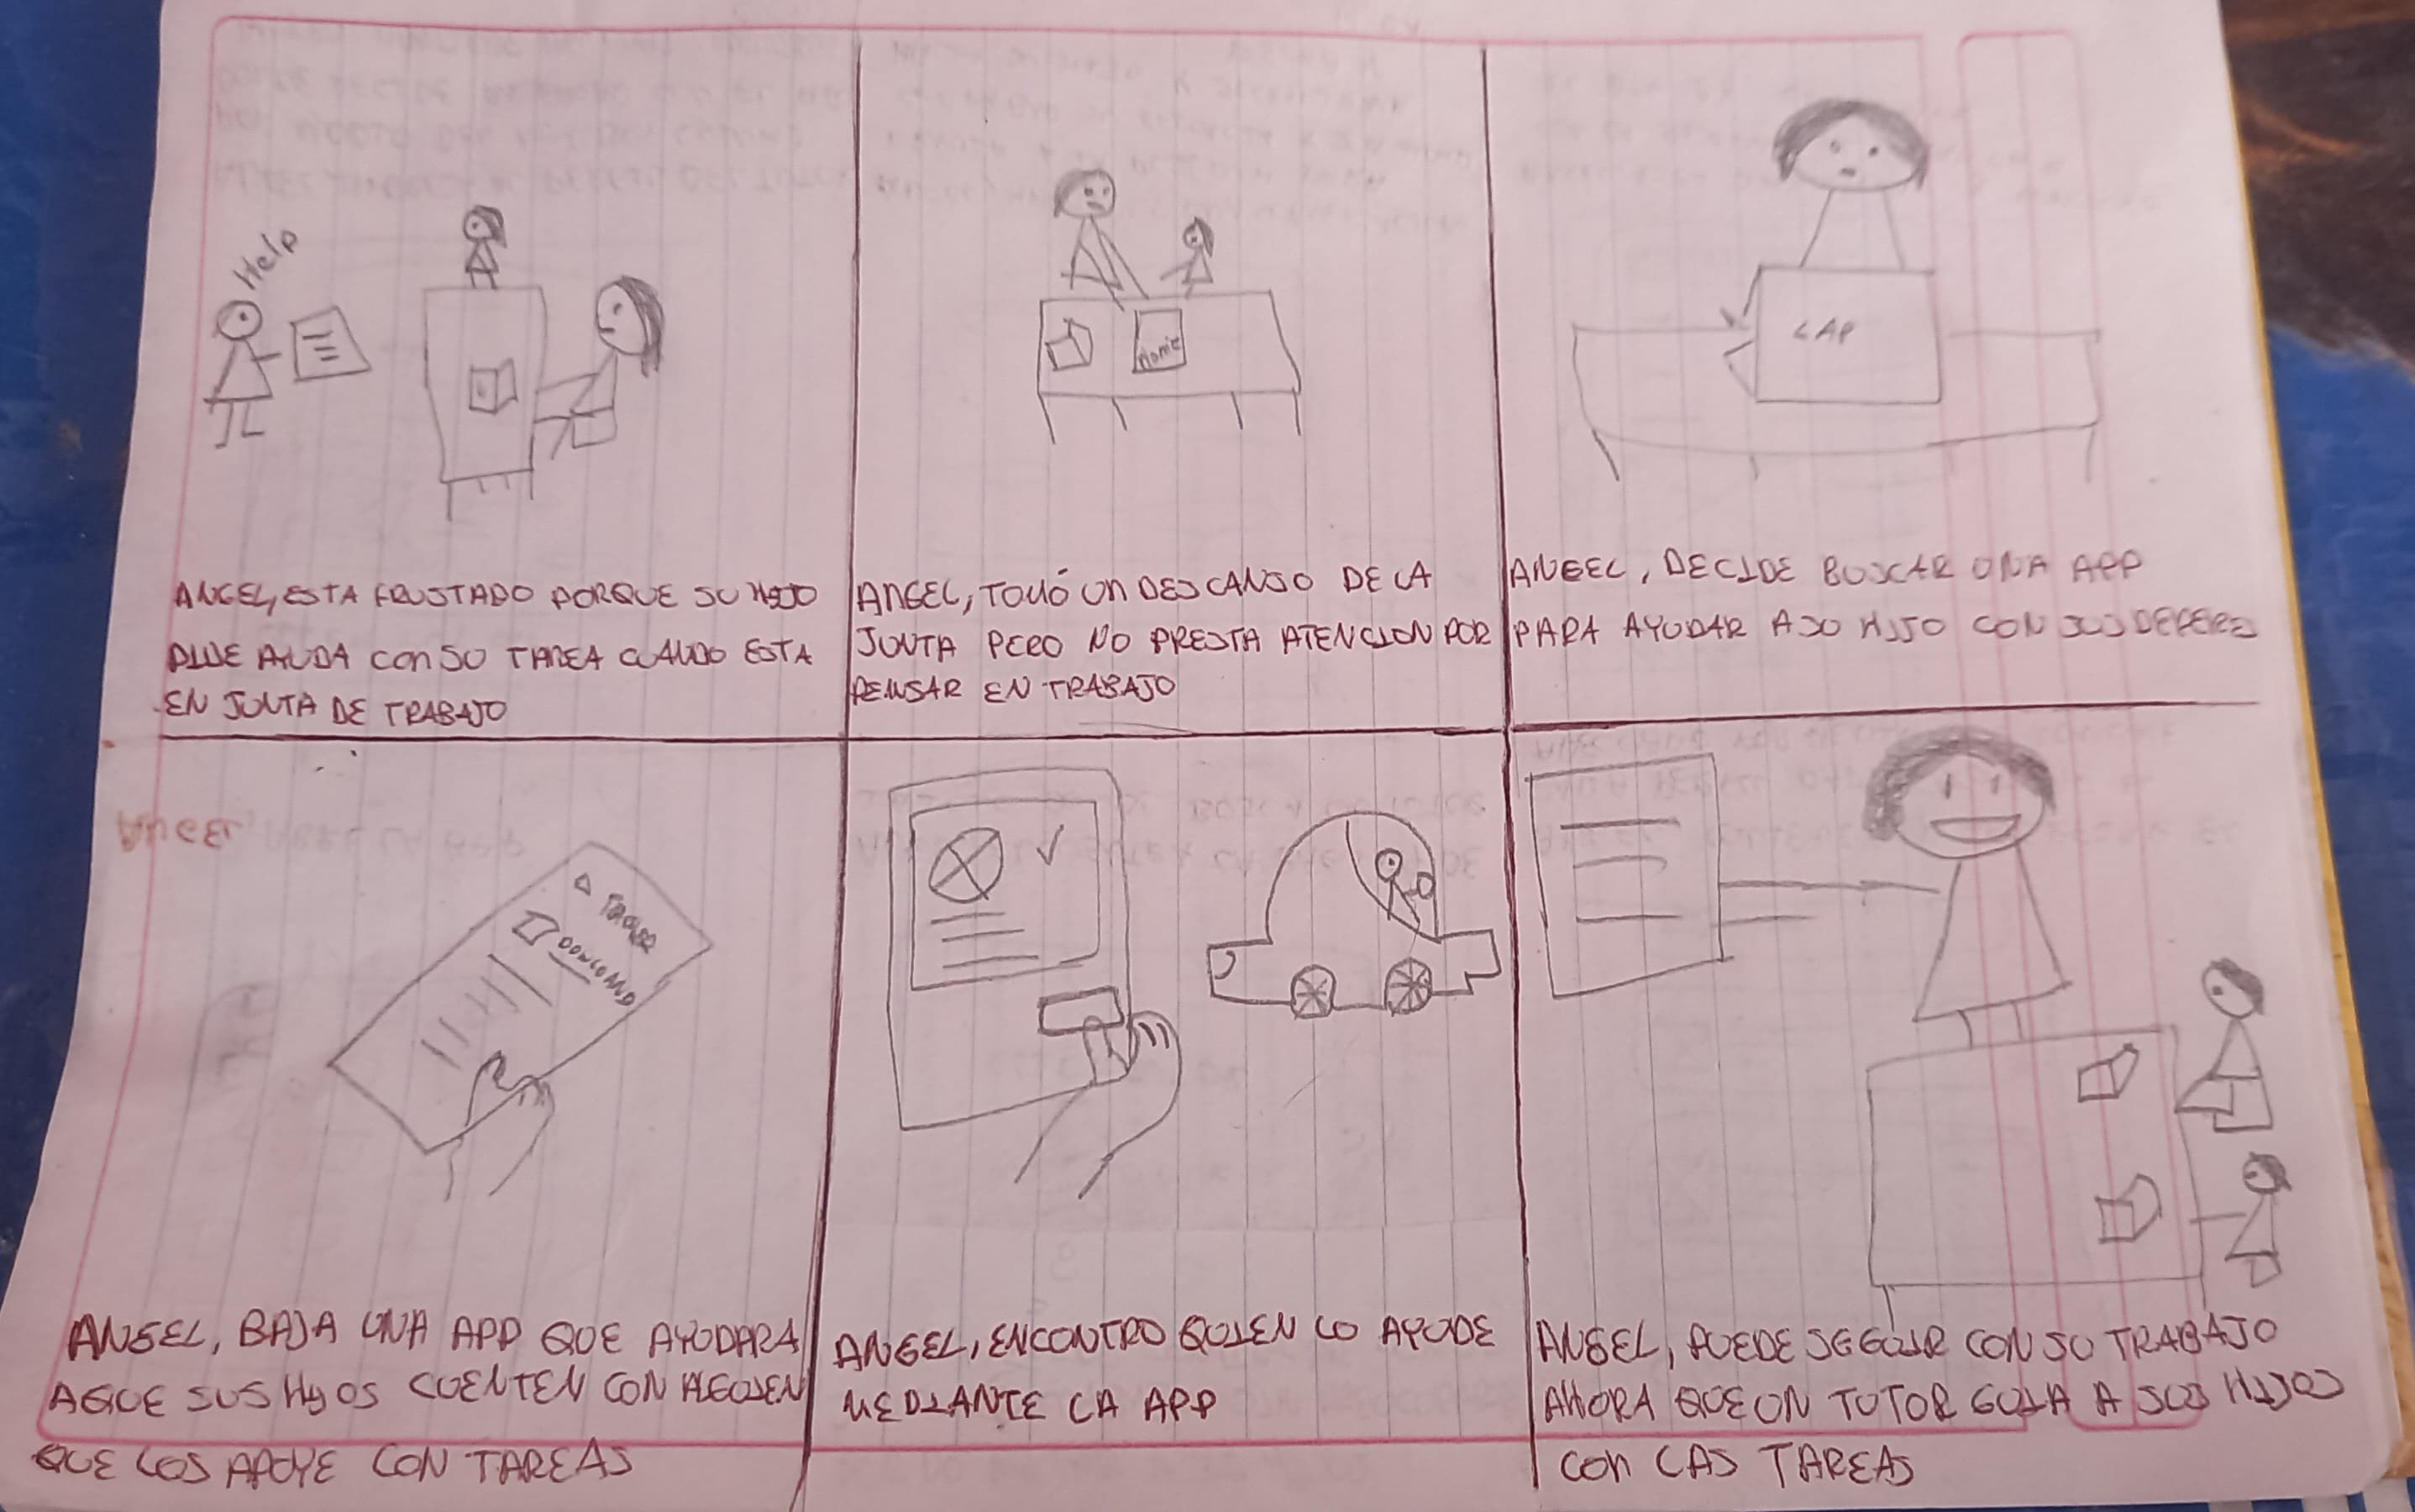 Help
ANGEL, ESTA FRUSTADO PORQUE SU HIJO
PIDE AYUDA CON SU TAREA CUANDO ESTA
EN JUNTA DE TRABAJO
Home
ANGEL, TOMÓ UN DESCANSO DE LA
JUNTA PERO NO PRESTA ATENCION POR
PENSAR EN TRABAJO
LAP
ANGEL, DECIDE BUSCAR UNA APP
PARA AYUDAR A SU HIJO CON SUS DEBERES
ANGEL, ABRE LA APP
DONLOAND
ANGEL, BAJA UNA APP QUE AYUDARA
AQUE SUS HIJOS CUENTEN CON ALGUIEN
QUE LOS APOYE CON TAREAS
ANGEL, ENCONTRO QUIEN LO AYUDE
MEDIANTE LA APP
ANGEL, PUEDE SEGUIR CON SU TRABAJO
AHORA QUE UN TUTOR GUIA A SUS HIJOS
CON LAS TAREAS